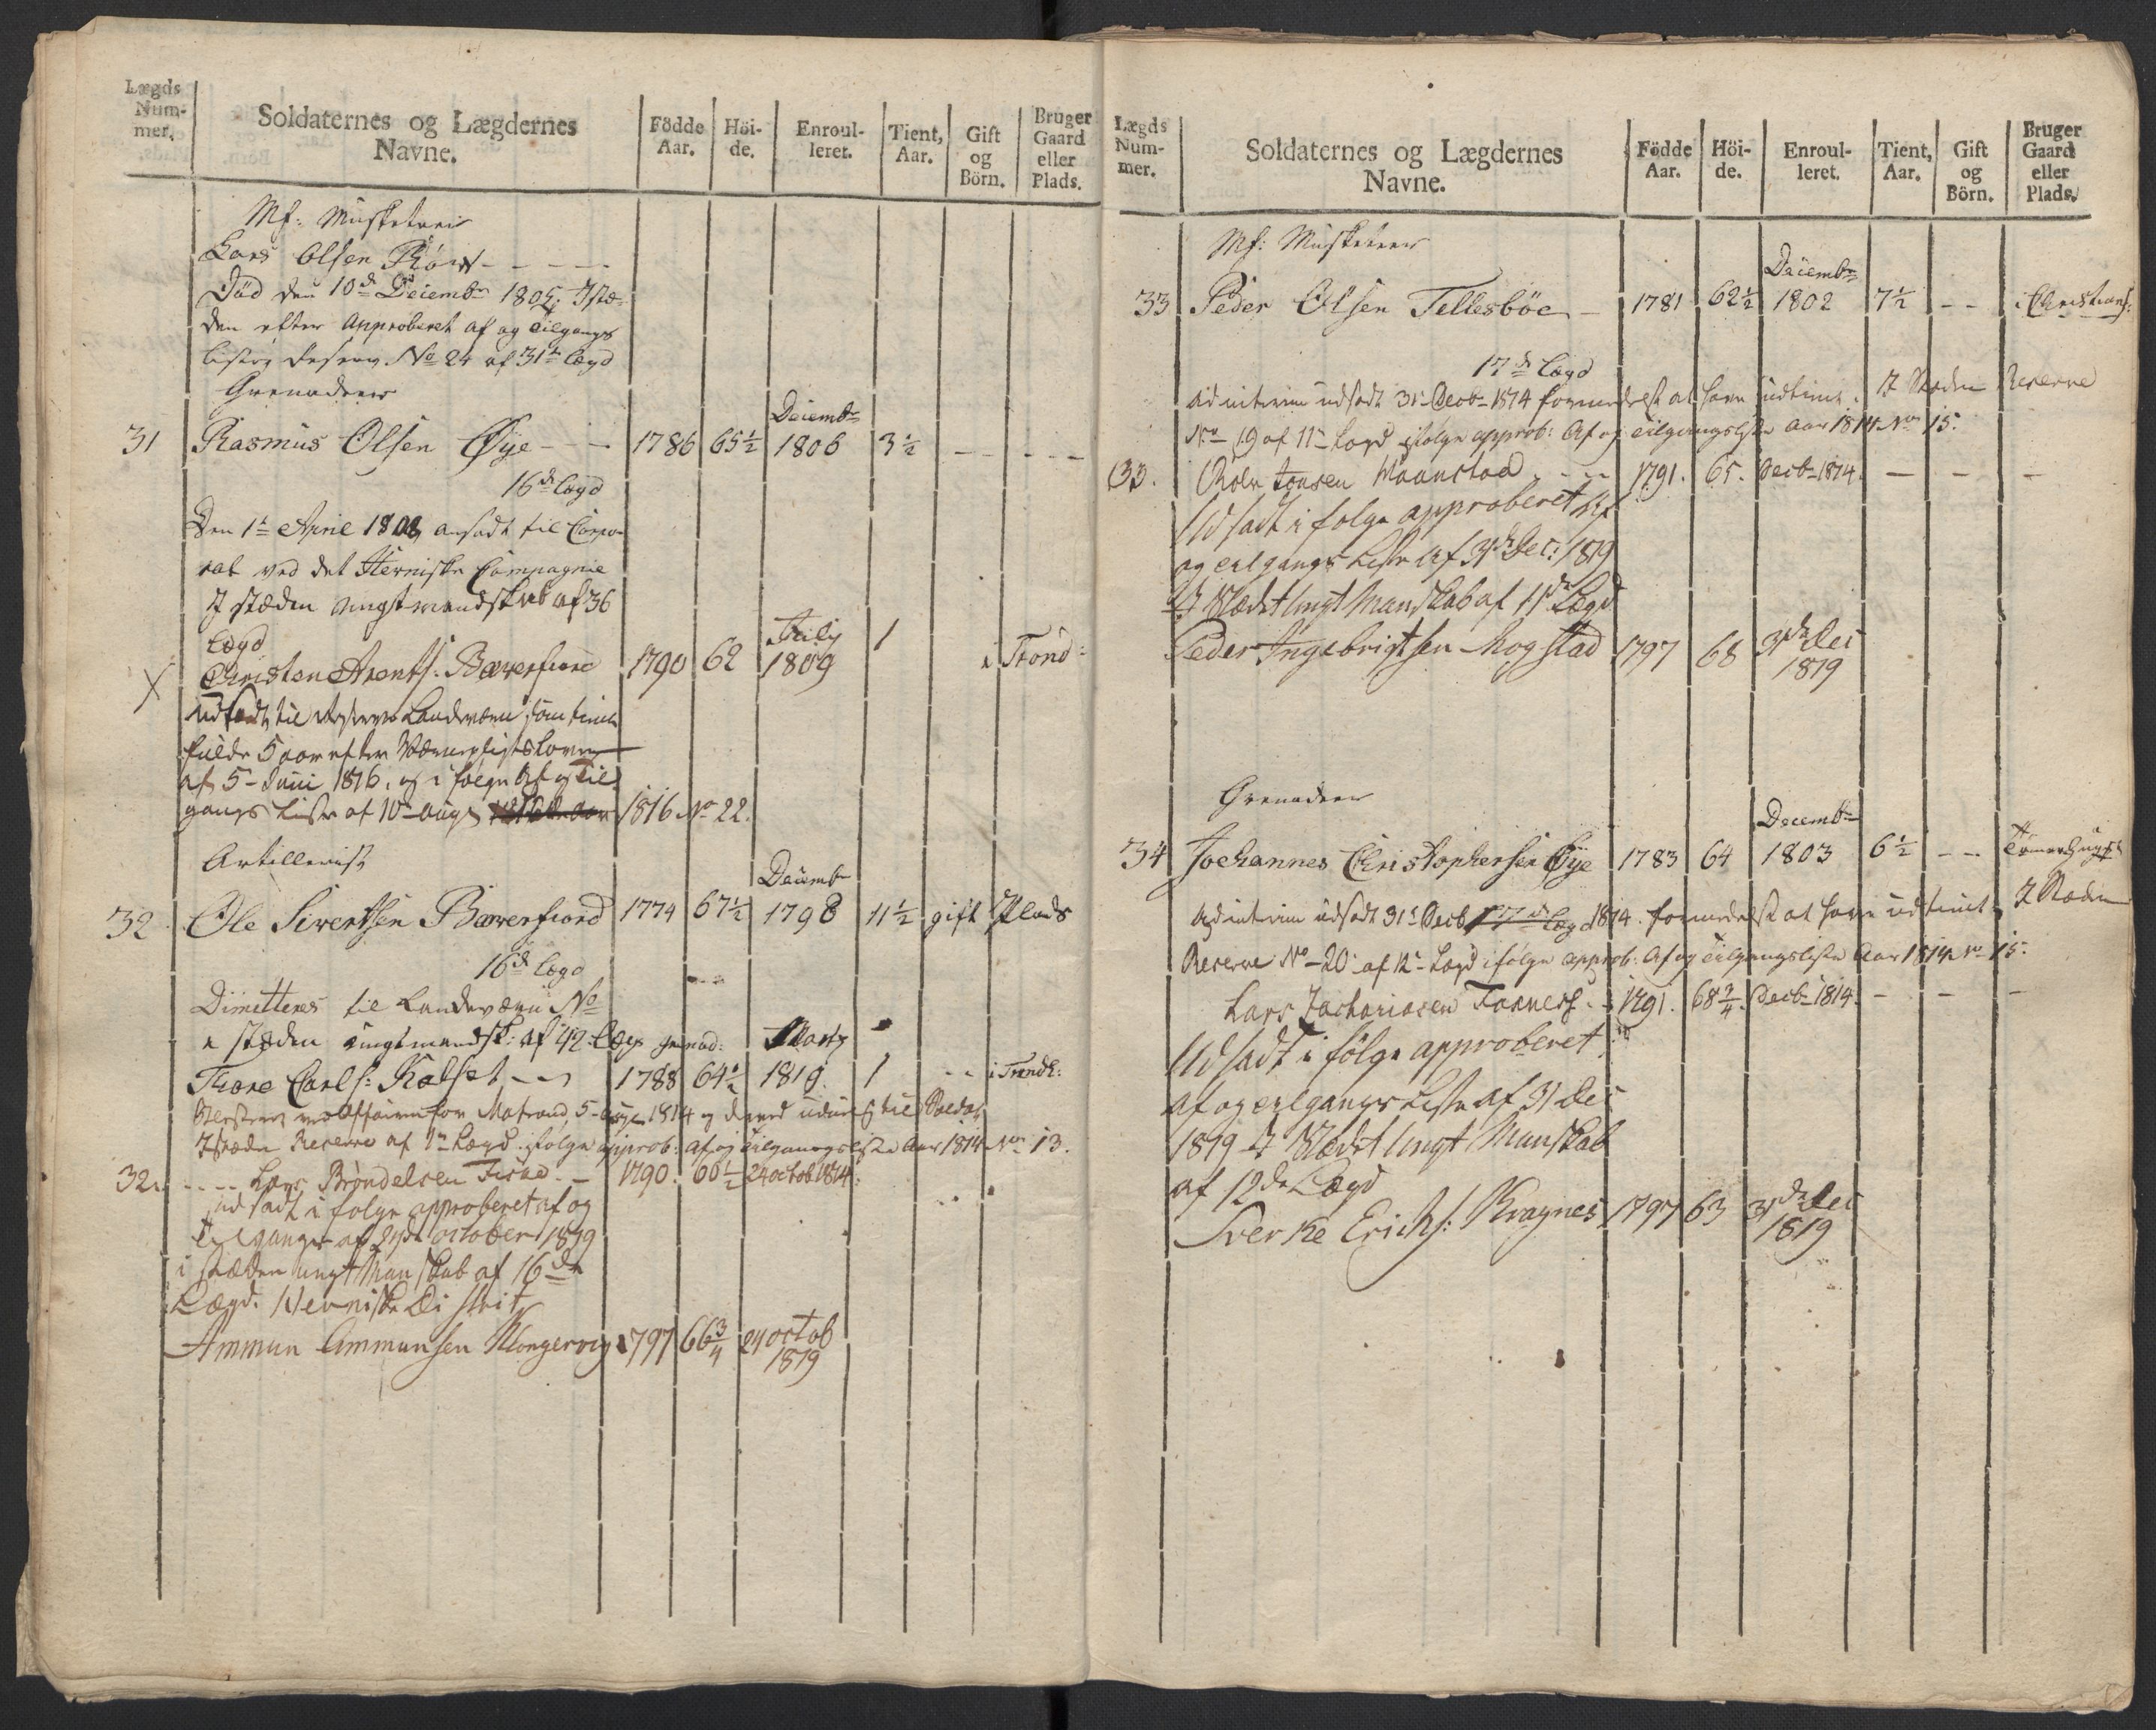 Lægds Num- mer. | Soldaternes og Lægdernes Navne. | Födde Aar. | Höi- de. | Enroul- leret. | Tient, Aar. | Gift og Börn. | Bruger Gaard eller Plads.
Mf: Musketeer
Lars Olsen
Död den 10de Decembr 1805. Istæ-
den efter Approberet af og tilgangs
liste Reserv No 24 af 31te Lægd
Grenadeer
31 Rasmus Olsen Øye - - 1786 65½ Decembr 1806 3½ - - - - -
16de Lægd
Den 1te April 1808 ansadt til Corpo-
ral ved det Herniske Compagnie
I stæden ungt mandskab af 36
Lægd
X Christen Arents: Bæverfiord 1790 62 July 1809 1 i Trond:
udsadt til Landværn som tient
fulde 5 aar efter Værnepligtsloven
af 5 Juni 1816, og i følge Af og Til-
gangs Liste af 10 Aug 1816 No 22.
Artillerist
32 Ole Sivertsen Bæverfiord 1774 67½ Decembr 1798 11½ gift Plads
16de Lægd
Dimitteres til Landværn No
i stæden ungt mandsk: af 42 Læg
Tore Carls: Kalset - - 1788 64½ Marty 1810 1 - - i Trondh:
Matrand 5 Aug 1814 og
I stæden Reserve af 1te Lægd ifølge approb: af og tilgangsliste Aar 1814 No 13.
32. - - - - Lars Brøndelsen - 1790. 60½ 24 octob 1814.
udsadt i følge approberet af og
tilgangs af 24de october 1819
i stæden ungt Manskab af 16de
Lægd. Herniske Distrit
Ammun Ammunsen Klongervig 1797 66¾ 24 octob 1819
Lægds Num- mer. | Soldaternes og Lægdernes Navne. | Födde Aar. | Höi- de. | Enroul- leret. | Tient, Aar. | Gift og Börn. | Bruger Gaard eller Plads.
Mf: Musketeer
33 Peder Olsen Tellesböe - 1781 62½ Decembr 1802 7½ - - i Christians:
17de Lægd
Ad interim udsadt 31 Decb 1814 formedelst at have udtient. I Stæden Reserve
No 19 af 11te Lægd ifølge approb: Af og tilgangsliste Aar 1814 No 15.
33. Rolv Jonsen Maanstad - - 1791. 65. Decb 1814. - - -
Udsadt i følge approberet Af
og tilgangs Liste af 31de Dec: 1819
I Stædet ungt Manskab af 11de Lægd
Peder Ingebrigtsen Mogstad 1797 68 31de Dec 1819
Grenadeer
34 Johannes Christophersen Øye 1783 64 Decembr 1803 6½ - -
Ad interim udsadt 31 Decb 17de Lægd 1814. formedelst at have udtient, I Stæden
Reserve No 20 af 12te Lægd ifølge approb: Af og tilgangsliste Aar 1814 No 15.
Lars Zachariasen - 1791. 68¾. Decb 1814. - - -
Udsadt i følge approberet
af og tilgangs Liste af 31 Dec
1819 I Stædet ungt Manskab
af 12de Lægd
Sverke Erichs: Kragnes 1797 63 31de Dec 1819